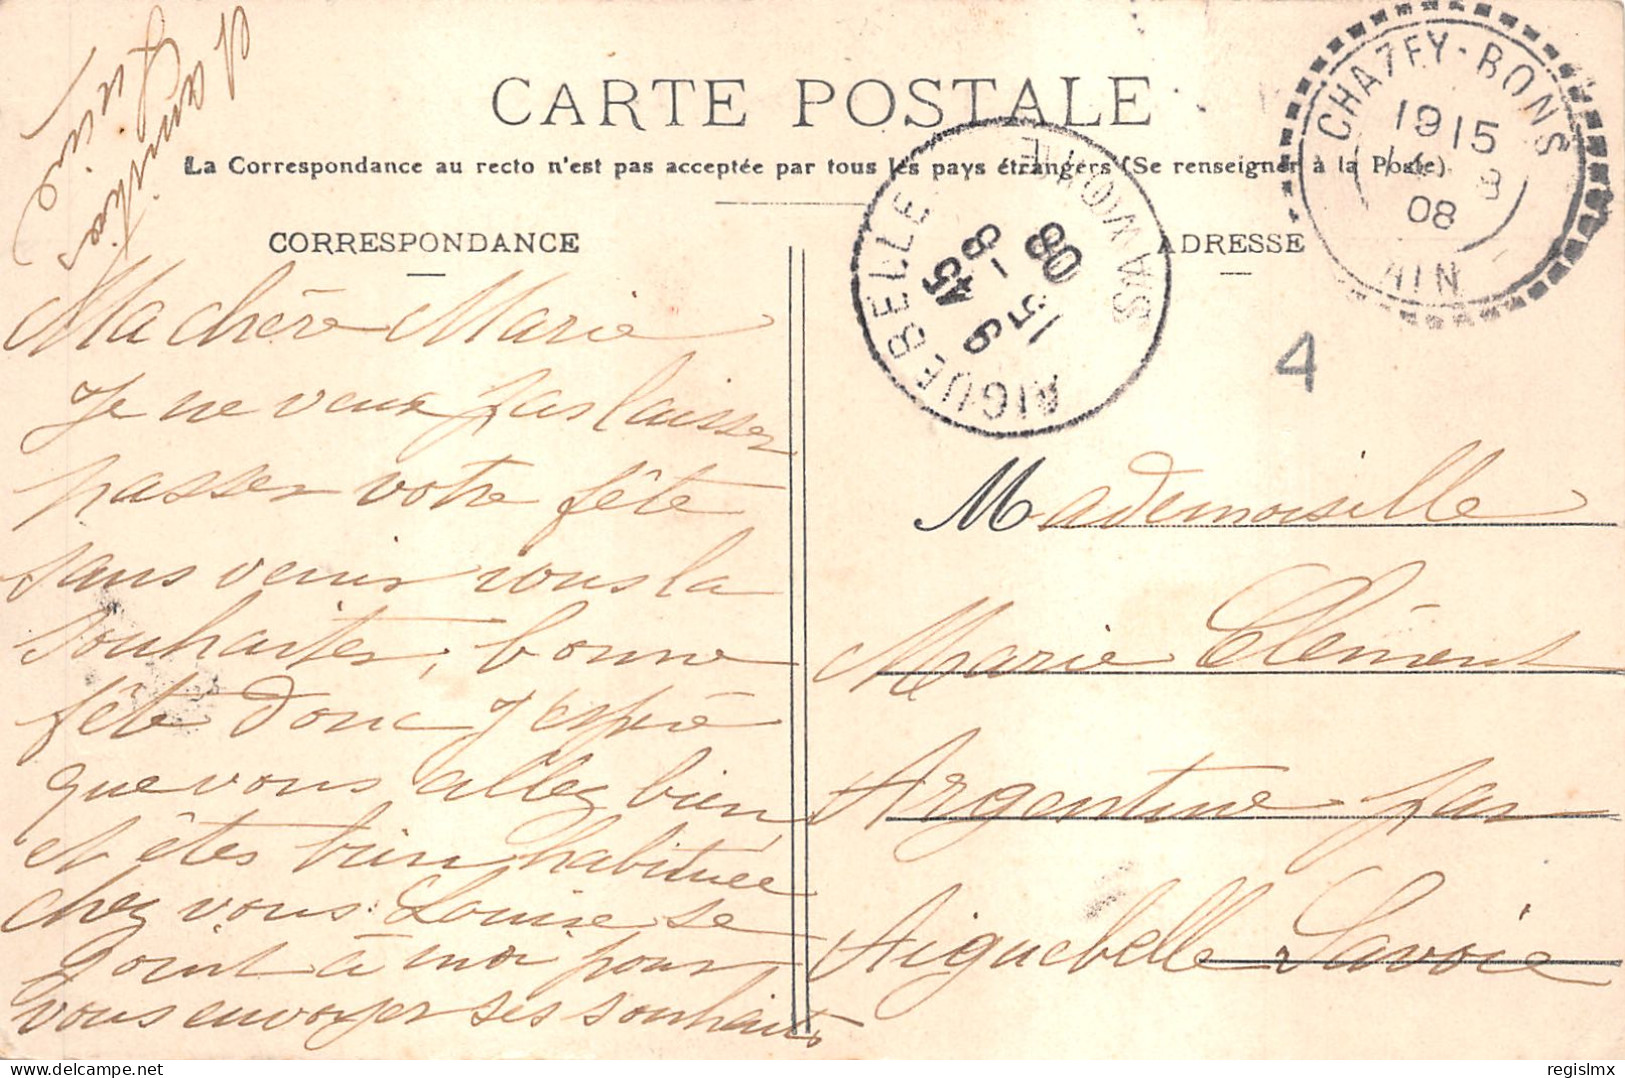 CARTE POSTALE
La Correspondance au recto n'est pas acceptée par tous les pays étrangers (Se renseigner à la Poste)
CORRESPONDANCE
Ma chère Marie
Je ne veux pas laisser
passer votre fête
sans venir vous la
souhaiter, bonne
fête donc J'espère
que vous allez bien,
et êtes bien habituée
chez vous. Louise se
joint à moi pour
vous envoyer ses souhaits
et amitiés
ADRESSE
CHAZEY-BONS
1915
8
08
AIN
AIGUEBELLE
SAVOIE
15-8
08
4
Mademoiselle
Marie Clément
Argentine par
Aiguebelle Savoie
regislmx